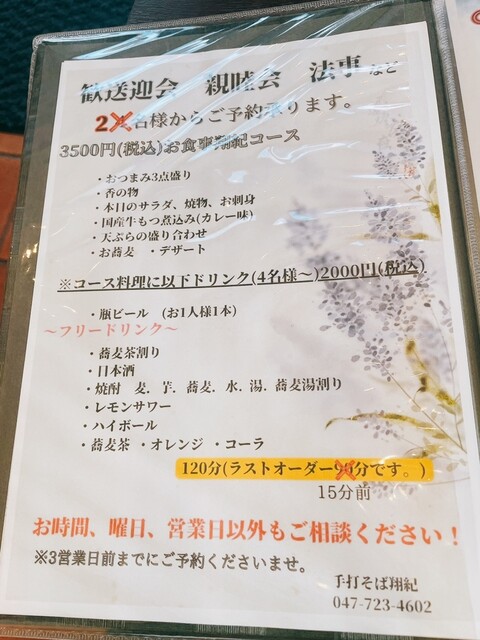 歓送迎会 親睦会 法事 など
2名様からご予約承ります。
3500円(税込)お食事翔紀コース
・おつまみ3点盛り
・香の物
・本日のサラダ、焼物、お刺身
・国産牛もつ煮込み(カレー味)
・天ぷらの盛り合わせ
・お蕎麦 ・デザート
※コース料理に以下ドリンク(4名様～)2000円(税込)
・瓶ビール (お1人様1本)
～フリードリンク～
・蕎麦茶割り
・日本酒
・焼酎 麦. 芋. 蕎麦. 水. 湯. 蕎麦湯割り
・レモンサワー
・ハイボール
・蕎麦茶 ・オレンジ ・コーラ
120分(ラストオーダー90分です。)
15分前
お時間、曜日、営業日以外もご相談ください！
※3営業日前までにご予約くださいませ。
手打そば翔紀
047-723-4602